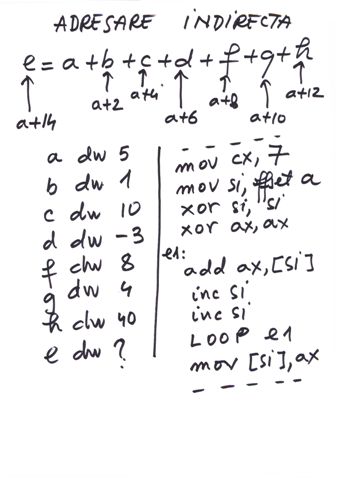 ADRESARE INDIRECTA
e = a + b + c + d + f + g + h
a+14 a+2 a+4 a+6 a+8 a+10 a+12
a dw 5
b dw 1
c dw 10
d dw -3
f dw 8
g dw 4
h dw 40
e dw ?
- - - - -
mov cx, 7
mov si, offset a
xor si, si
xor ax, ax
e1:
add ax, [si]
inc si
inc si
LOOP e1
mov [si], ax
- - - - -